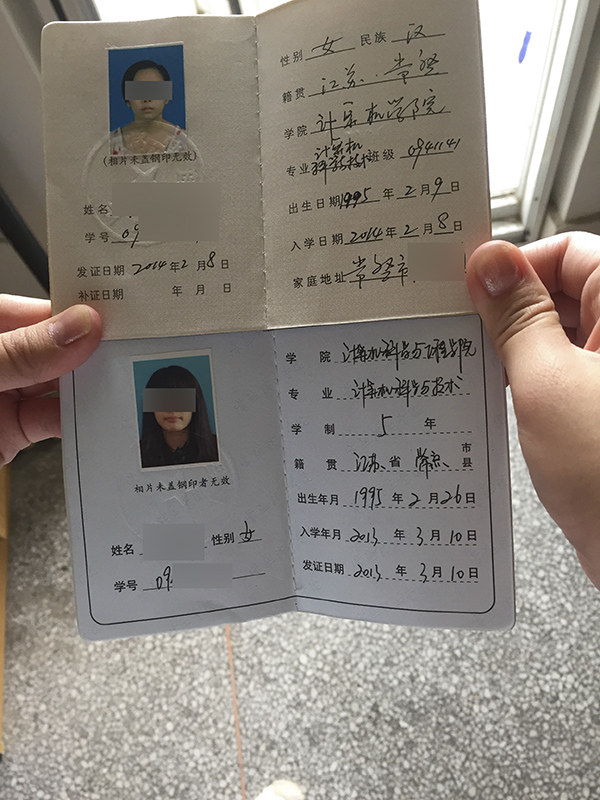 (相片未盖钢印无效)
姓名
学号 09
发证日期 2014 年 2 月 8 日
补证日期 年 月 日
性别 女 民族 汉
籍贯 江苏 常熟
学院 计算机学院
专业 计算机科学与技术 班级 0941141
出生日期 1995 年 2 月 9 日
入学日期 2014 年 2 月 8 日
家庭地址 常熟市
相片未盖钢印者无效
姓名 性别 女
学号 09
学 院 计算机科学与工程学院
专 业 计算机科学与技术
学 制 5 年
籍 贯 江苏 省 市县
出生年月 1995 年 2 月 26 日
入学年月 2013 年 3 月 10 日
发证日期 2013 年 3 月 10 日